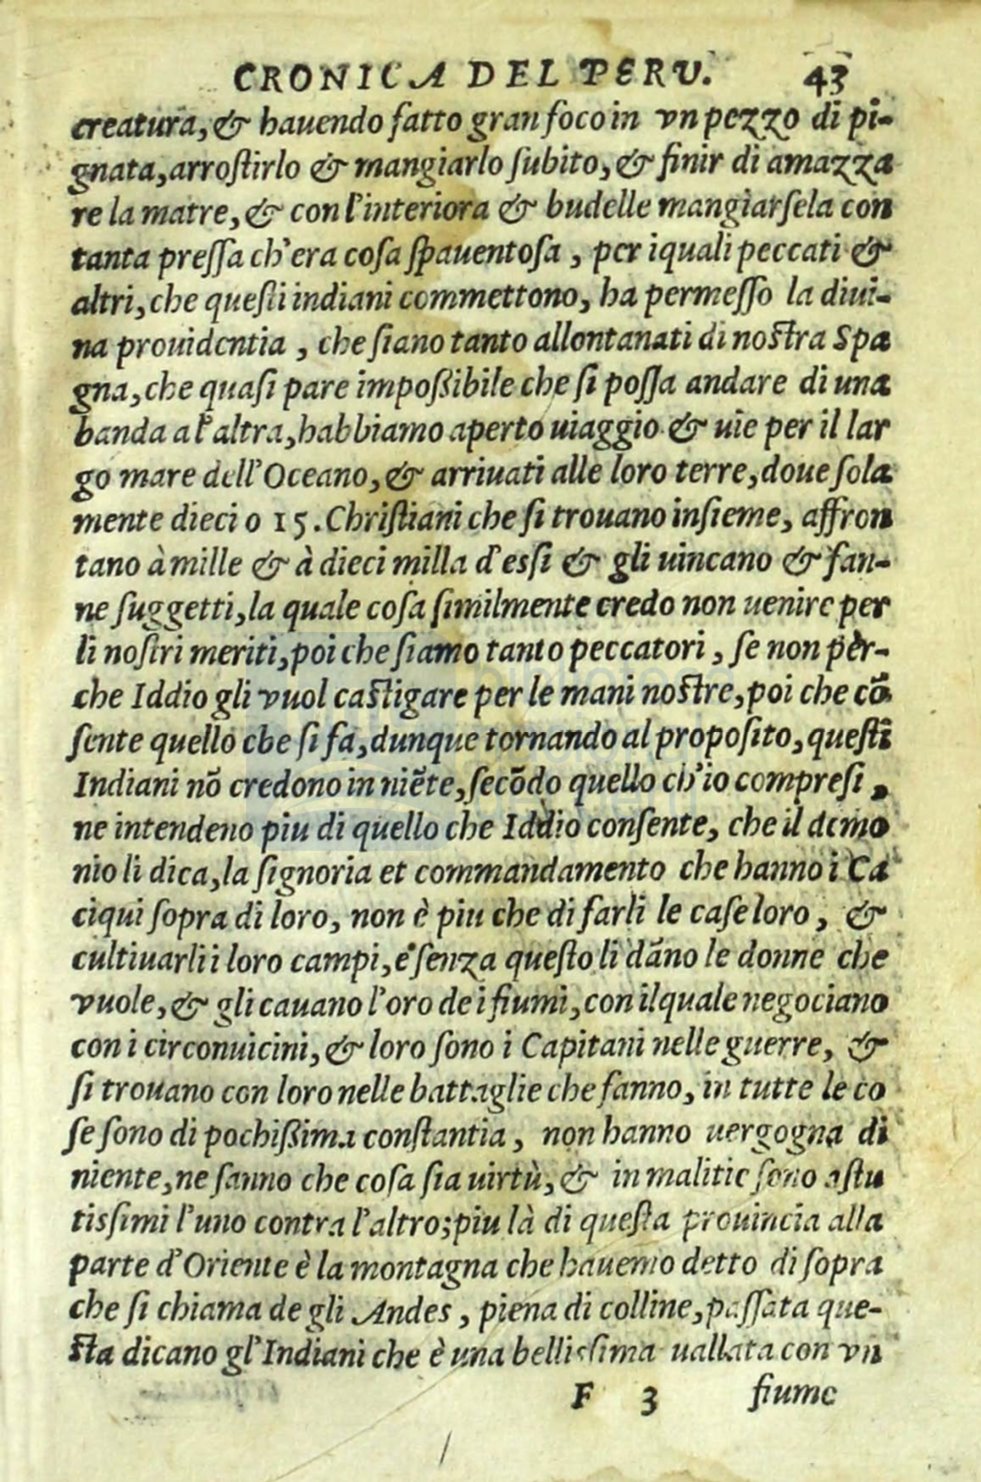 CRONICA DEL PERU. 43
creatura, & hauendo fatto gran foco in vn pezzo di pi-
gnata, arroſtirlo & mangiarlo ſubito, & finir di amazza
re la matre, & con l'interiora & budelle mangiarſela con
tanta preſſa ch'era coſa ſpauentoſa, per iquali peccati &
altri, che queſti indiani commettono, ha permeſſo la diui-
na prouidentia, che ſiano tanto allontanati di noſtra Spa
gna, che quaſi pare impoßibile che ſi poſſa andare di una
banda a l'altra, habbiamo aperto uiaggio & uie per il lar
go mare dell'Oceano, & arriuati alle loro terre, doue ſola
mente dieci o 15. Chriſtiani che ſi trouano inſieme, affron
tano à mille & à dieci milla d'eſſi & gli uincano & fan-
ne ſuggetti, la quale coſa ſimilmente credo non uenire per
li noſtri meriti, poi che ſiamo tanto peccatori, ſe non per-
che Iddio gli vuol caſtigare per le mani noſtre, poi che cō
ſente quello che ſi fa, dunque tornando al propoſito, queſti
Indiani nō credono in niēte, ſecōdo quello ch'io compreſi,
ne intendeno piu di quello che Iddio conſente, che il demo
nio li dica, la ſignoria et commandamento che hanno i Ca
ciqui ſopra di loro, non è piu che di farli le caſe loro, &
cultiuarli i loro campi, e ſenza queſto li dāno le donne che
vuole, & gli cauano l'oro de i fiumi, con il quale negociano
con i circonuicini, & loro ſono i Capitani nelle guerre, &
ſi trouano con loro nelle battaglie che fanno, in tutte le co
ſe ſono di pochißima conſtantia, non hanno uergogna di
niente, ne ſanno che coſa ſia uirtù, & in malitie ſono aſtu
tiſſimi l'uno contra l'altro; piu là di queſta prouincia alla
parte d'Oriente è la montagna che hauemo detto di ſopra
che ſi chiama de gli Andes, piena di colline, paſſata que-
ſta dicano gl'Indiani che è una belliſſima uallata con vn
F 3 fiume